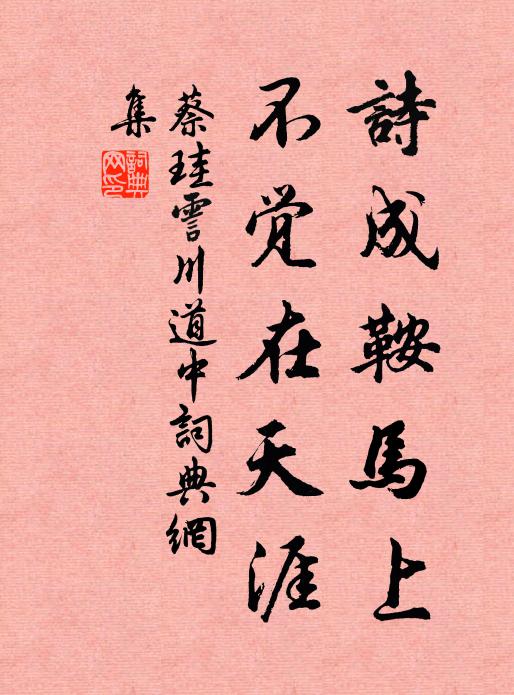 詩成鞍馬上
不觉在天涯
蔡珪霫川道中詞典網
集
詞典
网印